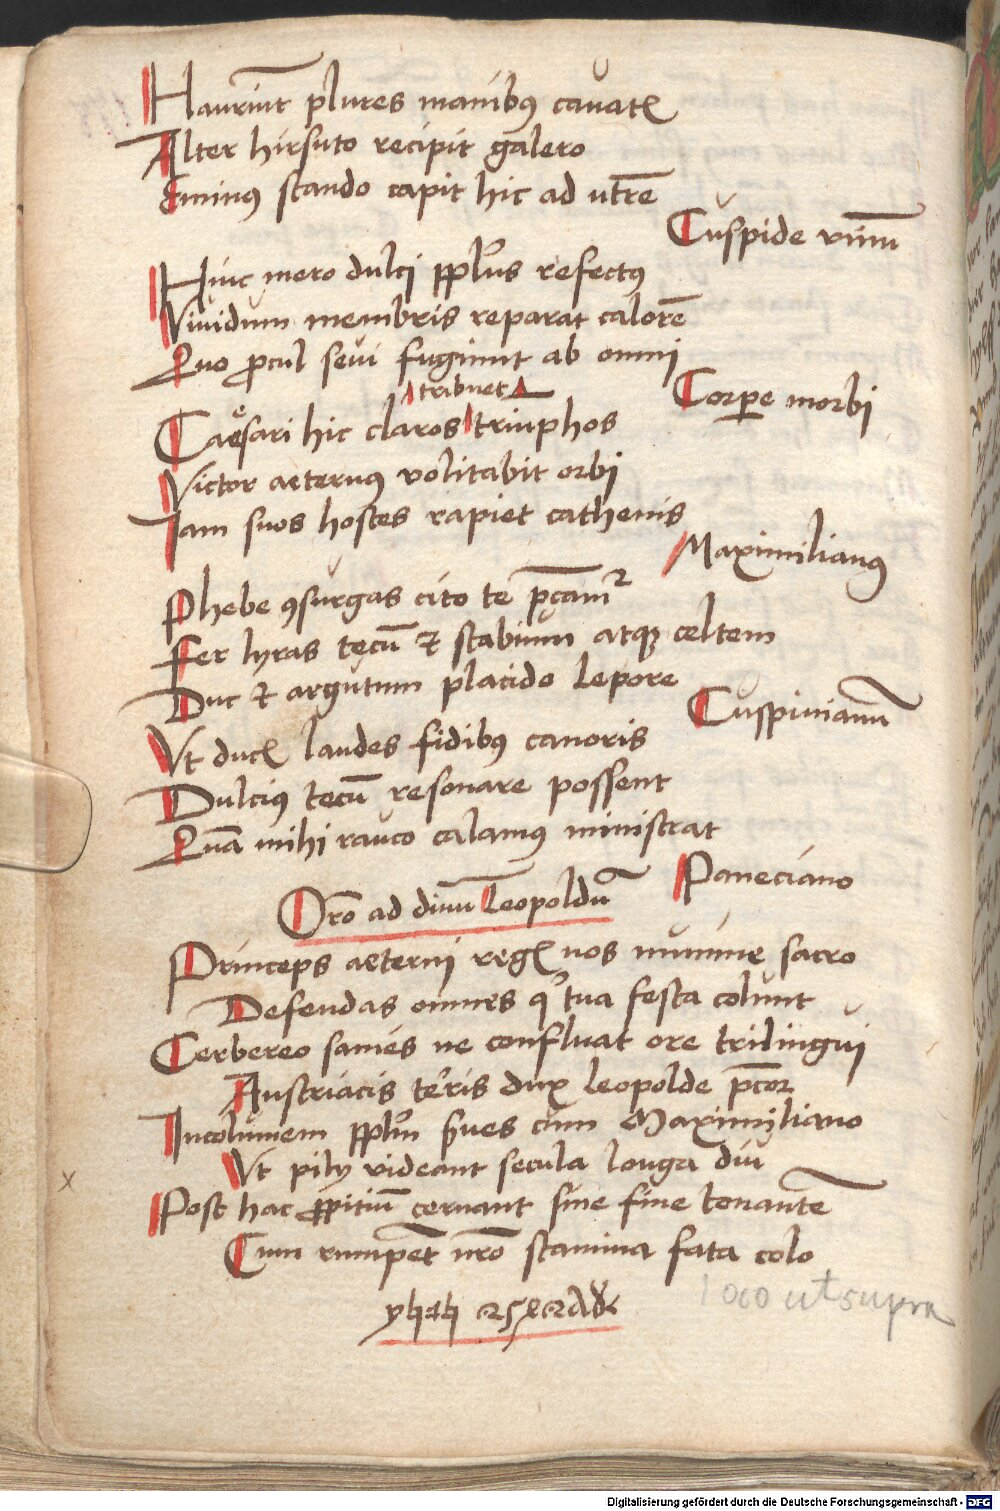 Hauriu͂t plures manibꝰ cauatꝭ
Alter hirsuto recipit galero
Eminꝰ stando capit hic ad vtre͂
Cuspide vinu͂
Huic mero dulci pp̱lus refectꝰ
Viuidum membris reparat calore͂
Quo ꝓcul seui fugiunt ab omni
Corꝑe morbi
tribuet
Caesari hic claros triu͂phos
Victor aeternꝰ volitabit orbi
Iam suos hostes rapiet cathenis
Maximilianꝰ
Phebe ꝯsurgas cito te p̄camᷣ
Fer lyras tecu͂ et stabium atqꝫ celtem
Duc et argutum placido lepore
Cuspinianu͂
Vt ducꝭ laudes fidibꝰ canoris
Dulciꝰ tecu͂ resonare possent
Qua͂ mihi rauco calamꝰ ministrat
Paneciano
Oro͂ ad diuu͂ Leopoldu͂
Princeps aeterni regꝭ nos numine sacro
Defendas omnes qͥ tua festa colunt
Cerbereo sanies ne confluat ore trilingui
Austriacis terris dux Leopolde p̄cor
Incolumem pplm̄ ẜues cum Maximiliano
Vt pily videant secula longa diu
Post hac ꝓpitiu͂ cernant sine fine tonante͂
Cum rumpe͂t nr͂o stamina fata colo
loco ut supra
x